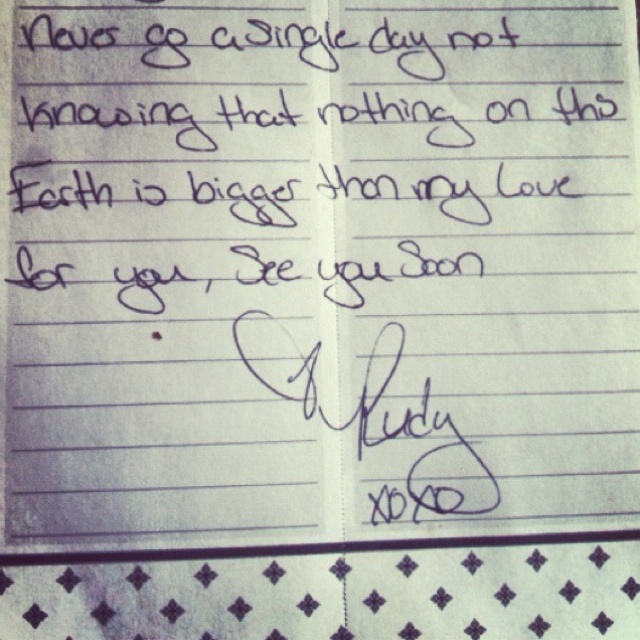 Never go a single day not
knowing that nothing on this
Earth is bigger than my love
for you, See you Soon
Rudy
xoxo